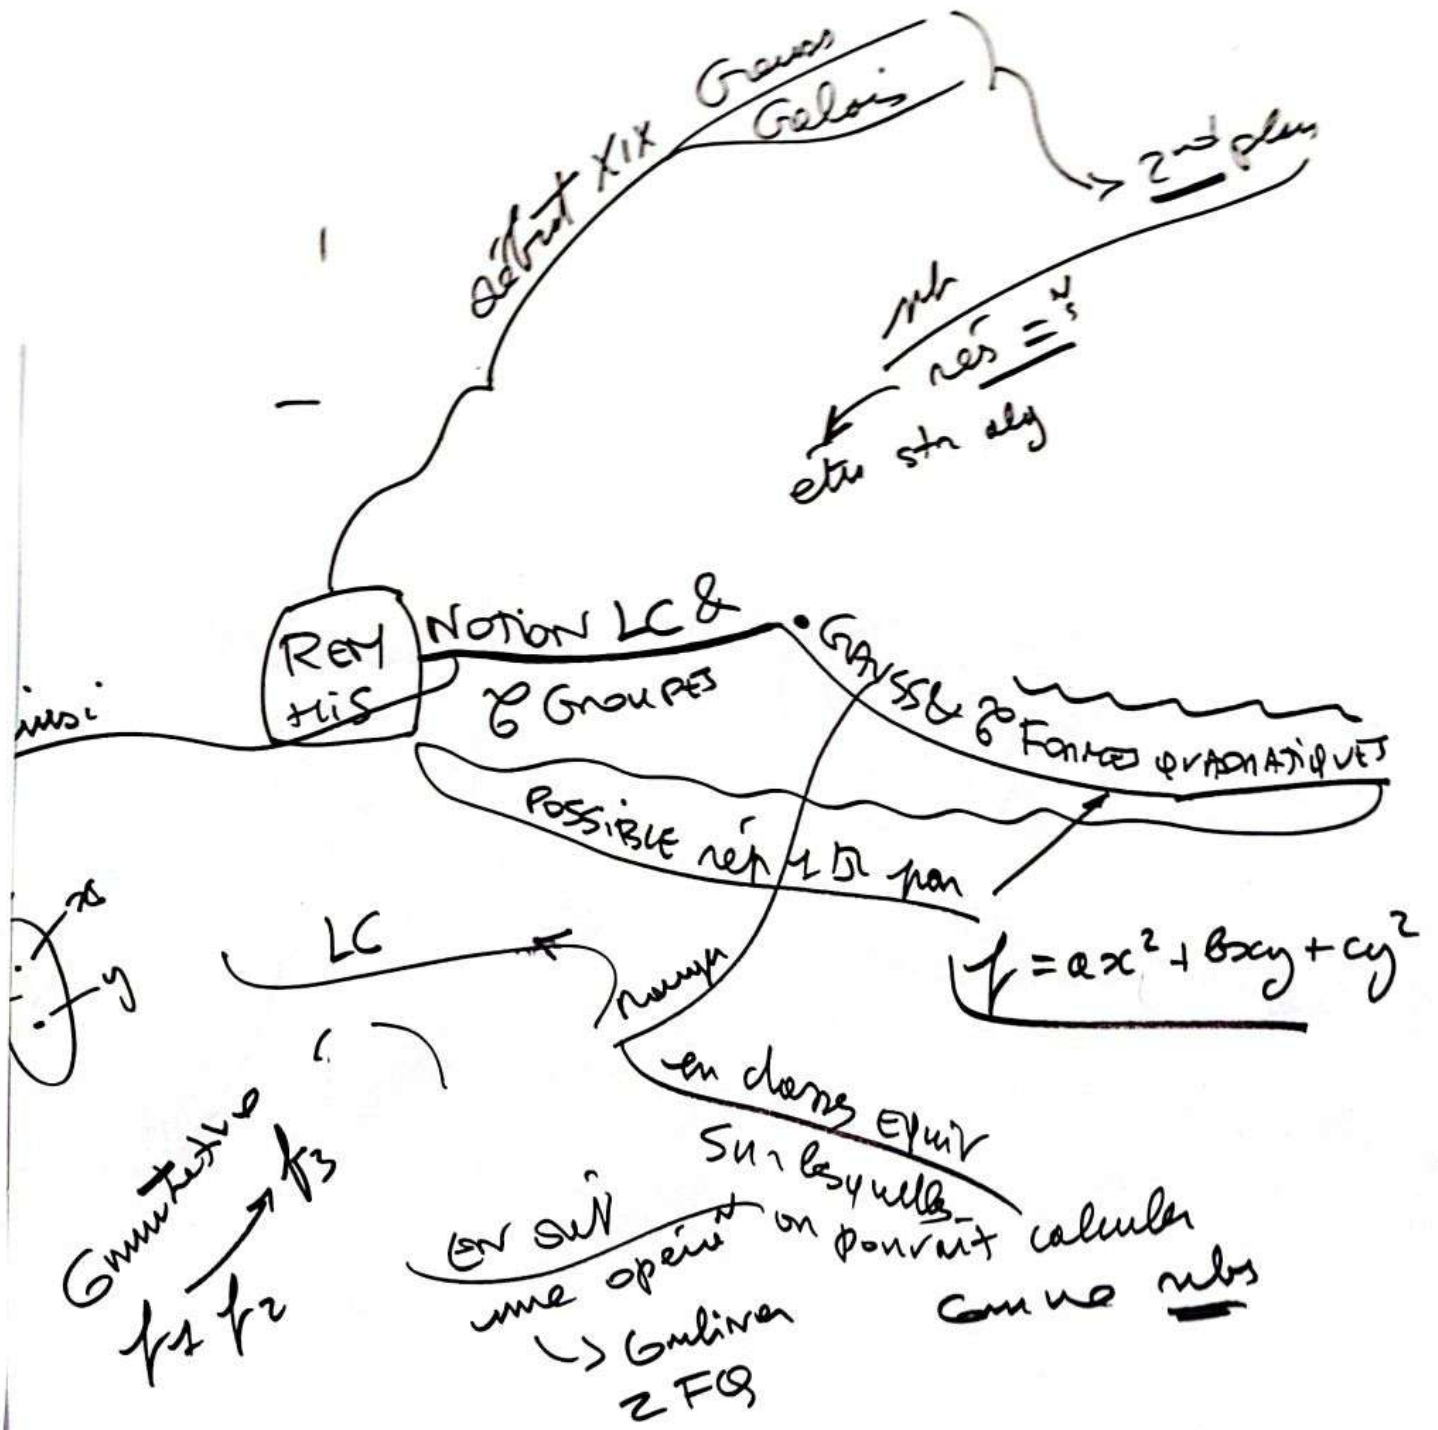 Gauss
Galois
début XIX
2nd plan
nb
rés =
étu str alg
REM
HIS
NOTION LC &
GROUPES
• GAUSS &
FORMES QUADRATIQUES
POSSIBLE rép 1 par
f = ax² + bxy + cy²
LC
x
y
en classes Equiv
Sur lesquelles
on pouvait calculer
comme nbs
En suit
une opér
↳ Combiner
2 FQ
Commutative
f1 f2
f3